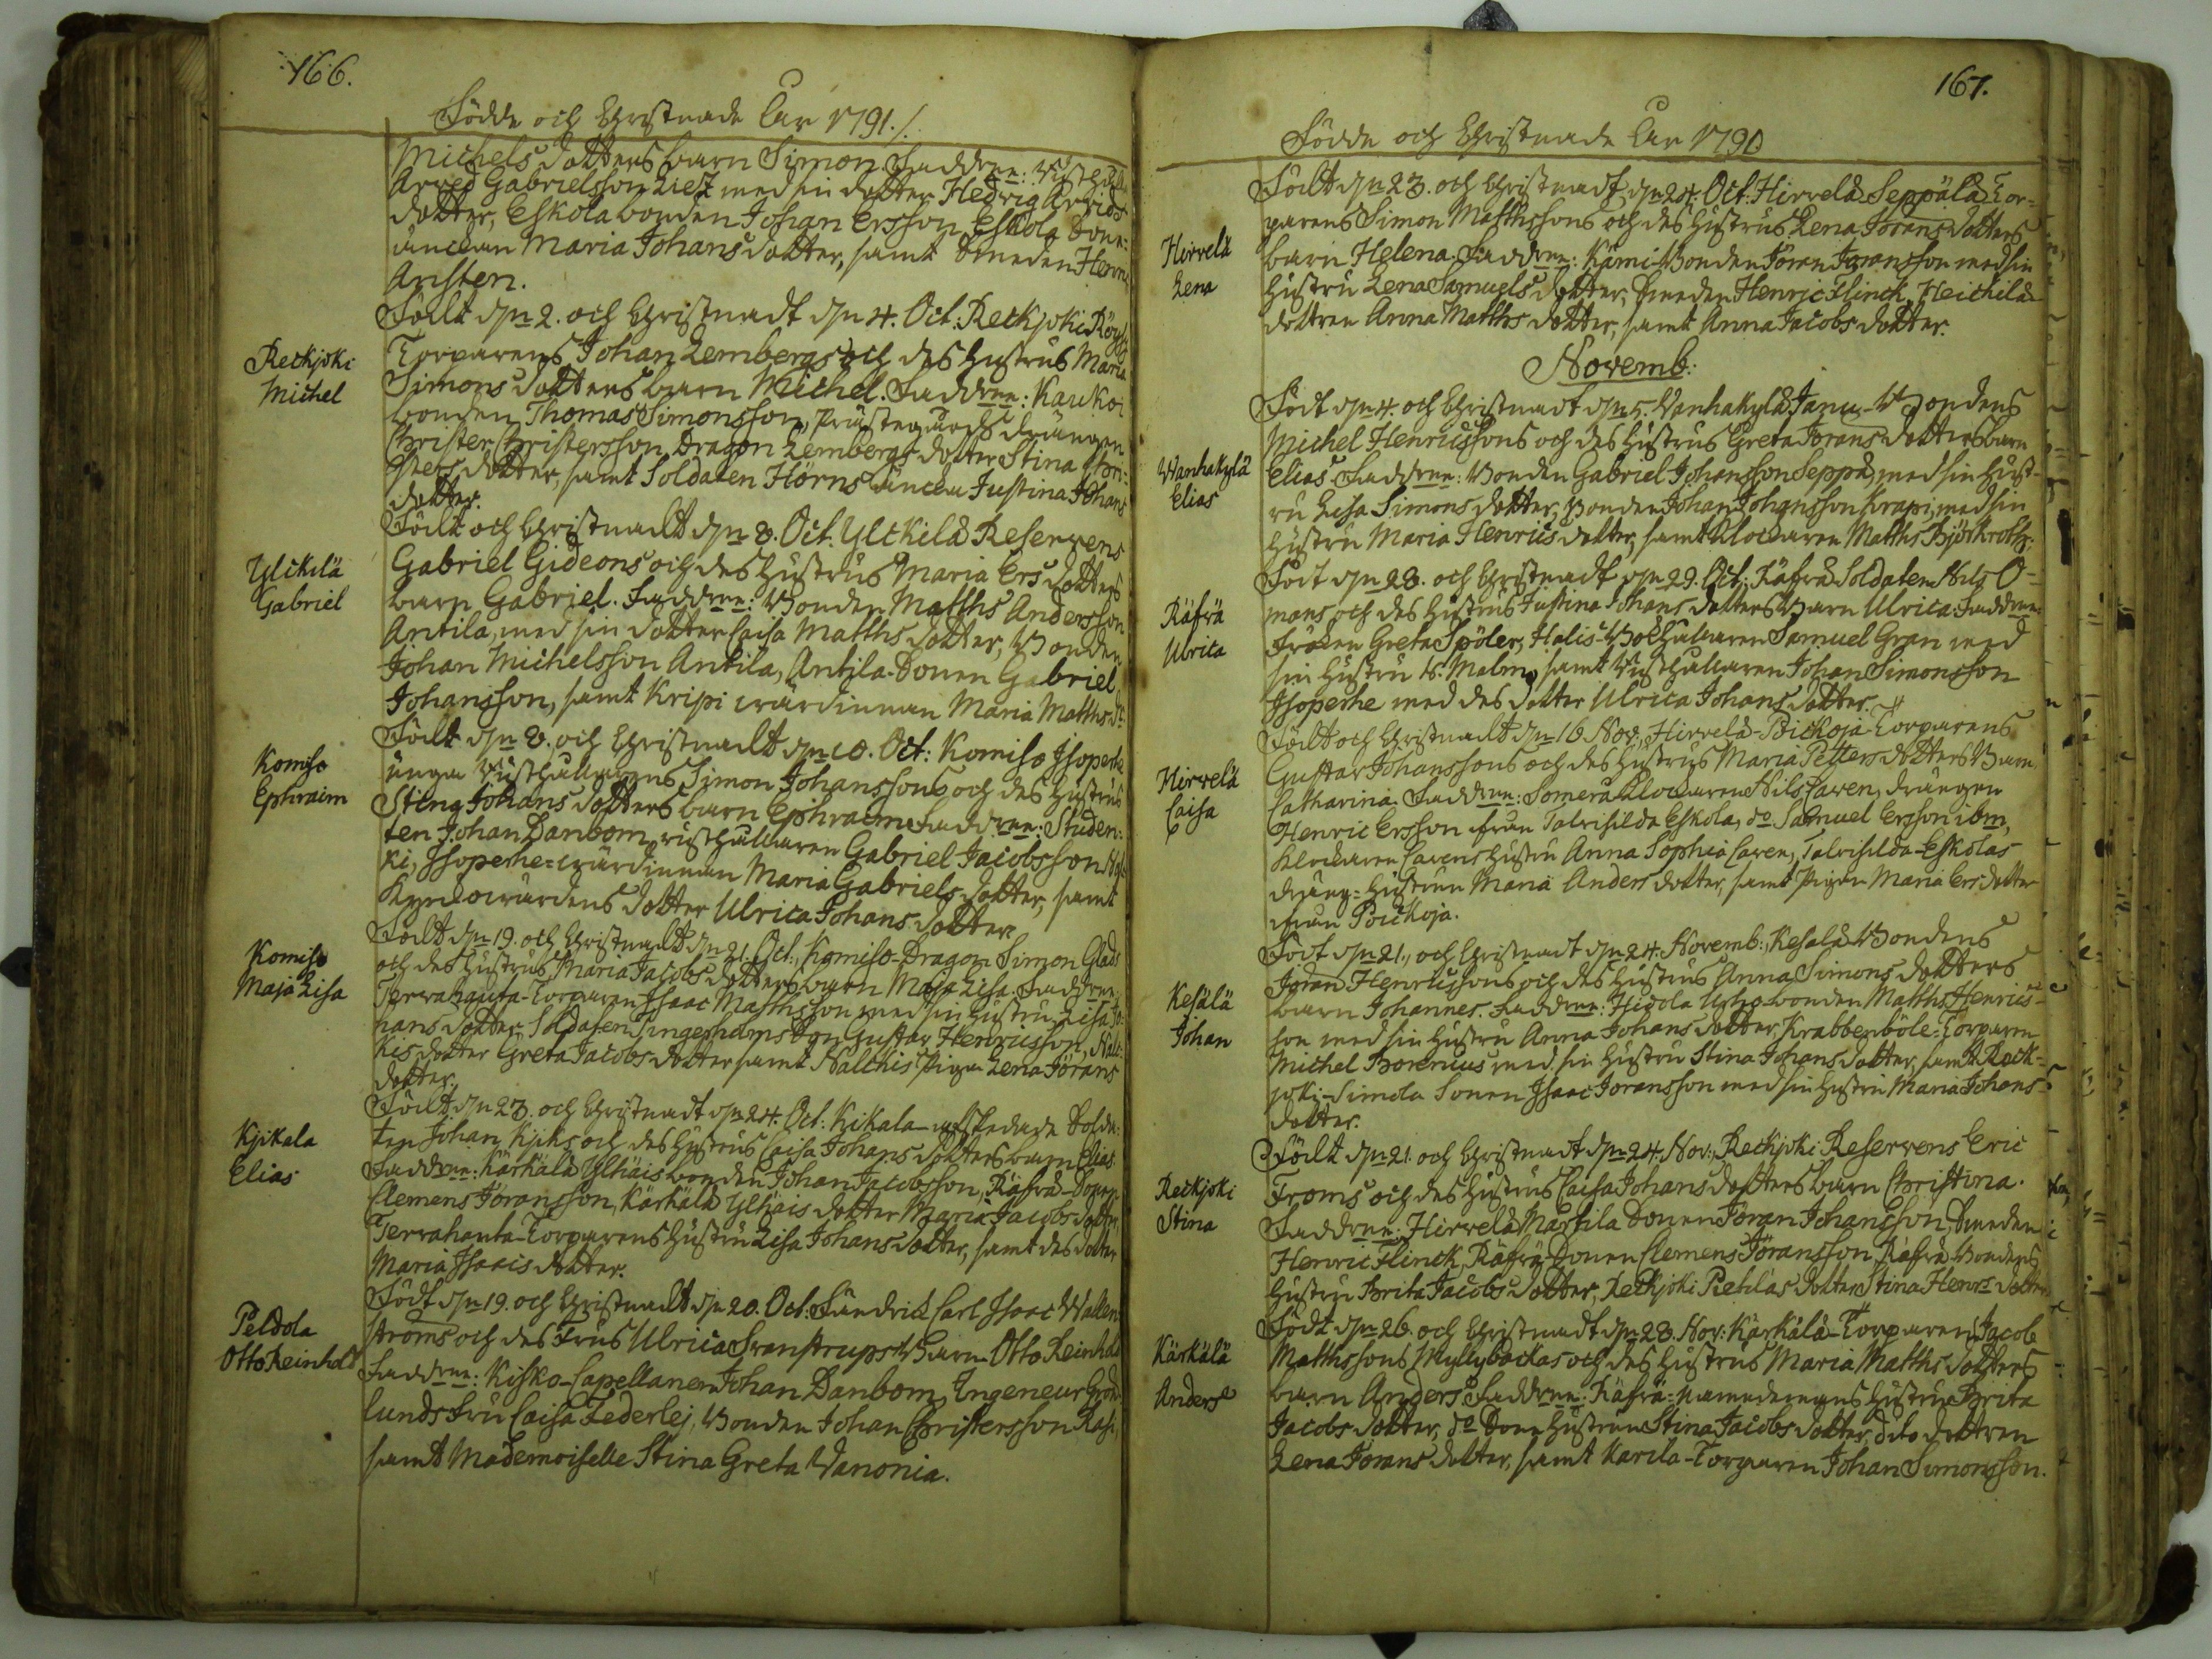 166.
Födde och Christnade Åar 1791./.
Michels dotters barn Simon. Faddrne: Rusthåll.
Arved Gabrielsson Liez med sin dotter Hedvig Arvids
dotter, Eskola bonden Johan Ersson, Eskola Sone-
änckan Maria Johans dotter, samt Smeden Henric
Ansten.
Reckjoki
Michel
Födt d 2. och Christnadt d 4. Oct. Reckjoki
Torparens Johan Lembergs och des Hustrus Maria
Simons dotters barn Michel. Faddrne: Kaukoi
bonden Thomas Simonsson, Prästegårds drängen
Christer Christersson, Dragon Lembergs dotter Stina Chri-
sters dotter, samt Soldaten Hörns äncka Justina Johans
dotter.
Ylickilä
Gabriel
Födt och Christnadt d 8. Oct. Ylckilä Reservens
Gabriel Gideons och des Hustrus Maria Ers dotters
barn Gabriel. Faddrne: Bonden Matths Andersson
Antila, med sin dotter Caisa Matths dotter, Bonden
Johan Michelsson Antila, Antila-Sonen Gabriel
Johansson, samt Kripi wärdinnan Maria Matths dr.
Komiso
Ephraim
Födt d 8. och Christnadt d 10. Oct: Komiso Isoperhe
unga Rusthållarens Simon Johanssons och des Hustrus
Stina Johans dotters barn Ephraim. Faddrne: Studen-
ten Johan Danbom, rusthållaren Gabriel Jacobsson
ki, Isoperhe-wärdinnan Maria Gabriels dotter, samt
Kyrckowärdens dotter Ulrica Johans dotter.
Komiso
Maja Lisa
Födt d 19. och Christnadt d 21. Oct., Komiso-Dragon Simon Glads
och des Hustrus Maria Jacobs dotters barn Maja Lisa. Faddrne:
Terrahauta-Torparen Isaac Matthsson med sin Hustru Lisa Jo-
hans dotter, Soldaten Tingerholms Son Gustav Henricsson, Nalc-
kis dotter Greta Jacobs dotter samt Nalckis Pigan Lena Jörans
dotter.
Kjikala
Elias
Födt d 23. och Christnadt d 24. Oct. Kikala-afskedade Solda-
ten Johan Kjiks och des Hustrus Caisa Johans dotters barn Elias.
Faddrne: Kärkälä Ylhäis bonden Johan Jacobsson, Räfvå-Sonen
Clemens Jöransson, Kärkälä Ylhäis dotter Maria Jacobs dotter,
Terrahauta-Torparens Hustru Lisa Johans dotter, samt des dotter
Maria Isacis dotter.
Peldola
Otto Reinhold
Födt d 19. och Christnadt d 20. Oct. Fändrick Carl Isaac Wallen-
ströms och des Frus Ulrica Svanstrups Barn Otto Reinhold
Faddrne: Kisko-Capellanen Johan Danbom, Ingeneur Grön-
lunds Fru Caisa Federlej, Bonden Johan Christersson Rasi,
samt Mademoiselle Stina Greta Wanonia.
167.
Födde och Christnade Åar 1791
Hirvelä
Lena
Födt d 23. och Christnadt d 24. Oct. Hirvelä Seppälä Tor-
parens Simon Matthssons och des Hustrus Lena Jörans dotters
barn Helena. Faddrne: Kämi-Bonden Jöran Jöransson med sin
Hustru Lena Samuels dotter, Smeden Henric Flinck, Heickilä
dottren Anna Matths dotter, samt Anna Jacobs dotter.
Novemb:
Wanhakylä
Elias
Födt d 4. och Christnadt d 5. Wanhakylä Janu-Bondens
Michel Henricssons och des Hustrus Greta Jörans dotters barn
Elias. Faddrne: Bonden Gabriel Johansson Seppä, med sin Hust-
ru Lisa Simons dotter, Bonden Johan Johansson Krapi, med sin
Hustru Maria Henrics dotter, samt Klockaren Matths Björkroth:
Räfvä
Ulrica
Födt d 28. och Christnadt d 29. Oct: Räfvå Soldaten Nils O-
mans och des Hustrus Justina Johans dotters Barn Ulrica. Faddrne:
Fröken Greta Spöler, Halis-Bolhållaren Samuel Gran med
sin Hustru B. Malm, samt Rusthållaren Johan Simonsson
Isoperhe med des dotter Ulrica Johans dotter.
Hirvelä
Caisa
Födt och Christnadt d 16. Nov., Hirvelä-Poickoja-Torparens
Gustav Johanssons och des Hustrus Maria Petters dotters Barn
Catharina. Faddrne: Somero Klockaren Nils Caren, drängen
Henric Ersson från Talvisilda Eskola, do Samuel Ersson ibm,
Klockaren Carens Hustru Anna Sophia Caren, Talvisilda-Eskolas
dräng-Hustrun Maria Anders dotter, samt Pigan Maria Ers dotter
från Poickoja.
Kesälä
Johan
Födt d 21., och Christnadt d 24. Novemb., Kesälä Bondens
Jöran Henricssons och des Hustrus Anna Simons dotters
barn Johannes. Faddrne: Hidola Yrhö-bonden Matths Henrics-
son med sin Hustru Anna Johans dotter, Krabbenböle-Torparen
Michel Borenius med sin Hustru Stina Johans dotter, samt Reck-
joki-Simola Sonen Isaac Jöransson med sin Hustru Maria Johans-
dotter.
Reckjoki
Stina
Födt d 21. och Christnadt d 24. Nov., Reckjoki Reservens Eric
Froms och des Hustrus Caisa Johans dotters barn Christina.
Faddrne: Hirvelä Marttila Sonen Jöran Johansson, Smeden
Henric Flinck, Räfvå Sonen Clemens Jöransson, Räfvå Bondens
Hustru Brita Jacobs dotter, Reckjoki Retulas dotter Stina Henrs dotter
Kärkälä
Anders
Födt d 26. och Christnadt d 28. Nov: Kärkälä-Torparen Jacob
Matthssons Myllybackas och des Hustrus Maria Matths dotters
barn Anders. Faddrne: Räfvä-nämndemans Hustrun Brita
Jacobs dotter, do Sone Hustrun Stina Jacobs dotter, dito dottren
Lena Jörans dotter, samt Karila-Torparen Johan Simonsson.